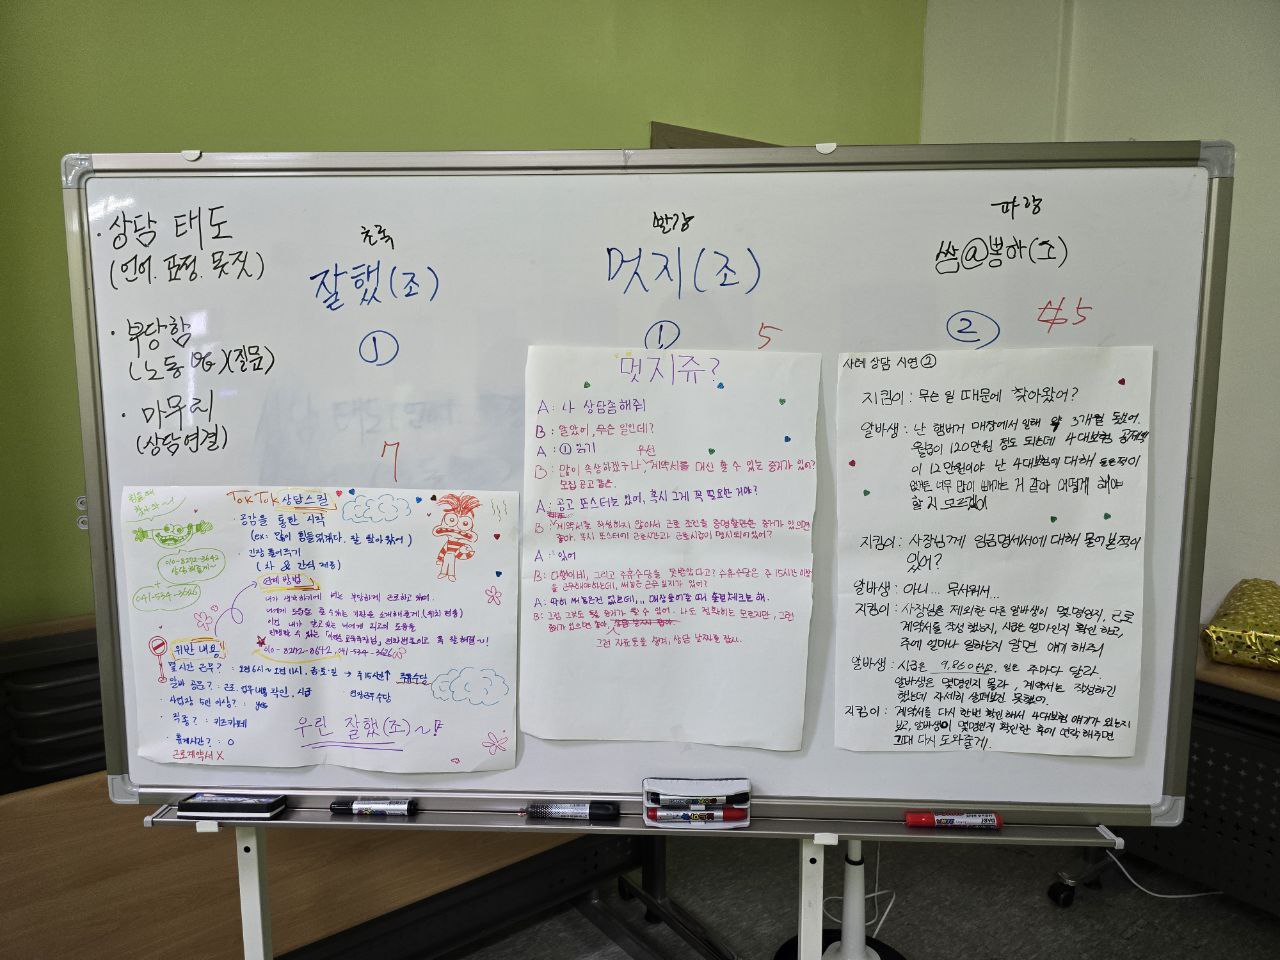 · 상담 태도
(언어. 표정. 몟짓)
· 부당함
(노동 )(질문)
· 마무리
(상담연결)
초록
잘했(조)
①
7
빨강
멋지(조)
①
5
파랑
쌈@뽕하(조)
②
5
TokTok 상담스킬
010-8272-3642
041-534-3626
· 공감을 통한 시작
(ex: 많이 힘들었겠다. 잘 찾아왔어)
· 긴장 풀어주기
(차 & 간식 제공)
연계 방법
010-8272-8642, 041-534-3626
위반 내용
몇시간 근무? : 오전 6시 ~ 오전 11시, 금·토·일 → 주 15시간↑ 주휴수당
알바 공문? : 근로, 업무내용 확인, 시급
· 사업장 5인 이상? : yes
연장근무수당
· 직종? : 키즈카페
· 휴게시간? : O
근로계약서 X
우린 잘했(조)~♪
멋지쥬?
A : 나 상담좀해줘!
B : 알았어, 무슨 일인데?
A : ① 읽기
우선
B : 많이 속상하겠구나 계약서를 대신 할 수 있는 증거가 있어?
모집 공고 같은.
A : 공고 포스터는 있어, 혹시 그게 꼭 필요한 거야?
B : 계약서를 작성하지 않아서 근로 조건을 증명할만한 증거가 있으면
좋아. 혹시 포스터에 근로시간과 근로시급이 명시되어있어?
A : 있어
B : 다행이네, 그리고 주휴수당을 못받았다고? 주휴수당은 주 15시간 이상
을 근무해야하는데, 써놓은 근무 일지가 있어?
A : 딱히 써놓은건 없는데... 매장들어올 때 출퇴체크는 해.
B : 그럼 그것도 될 증거가 될 수 있어. 나도 정확히는 모르지만, 그런
증거가 있으면 좋아.
그런 자료들을 챙겨, 상담 날짜를 잡자.
사례 상담 시연 ②
지킴이 : 무슨 일 때문에 찾아왔어?
알바생 : 난 햄버거 매장에서 일해 약 3개월 됐어.
월급이 120만원 정도 되는데 4대보험 공제액
이 12만원이야 난 4대보험에 대해 들은적이
없는데 너무 많이 빼가는 거 같아 어떻게 해야
할 지 모르겠어
지킴이 : 사장님께 임금명세서에 대해 물어본적이
있어?
알바생 : 아니... 무서워서...
지킴이 : 사장님을 제외한 다른 알바생이 몇명인지, 근로
계약서를 작성 했는지, 시급은 얼마인지 확인 하고,
주에 얼마나 일하는지 알면 얘기 해줘!
알바생 : 시급은 9,860원이고, 일은 주마다 달라.
알바생은 몇명인지 몰라, 계약서는 작성하긴
했는데 자세히 살펴보진 못했어.
지킴이 : 계약서를 다시 한번 확인해서 4대보험 얘기가 있는지
보고, 알바생이 몇명인지 확인한 후에 연락 해주면
그때 다시 도와줄게.